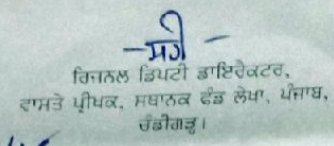 ਰਿਜਨਲ ਡਿਪਟੀ ਡਾਇਰੈਕਟਰ,
ਵਾਸਤੇ ਪ੍ਰੀਖਕ, ਸਥਾਨਕ ਫੰਡ ਲੇਖਾ, ਪੰਜਾਬ,
ਚੰਡੀਗੜ੍ਹ।